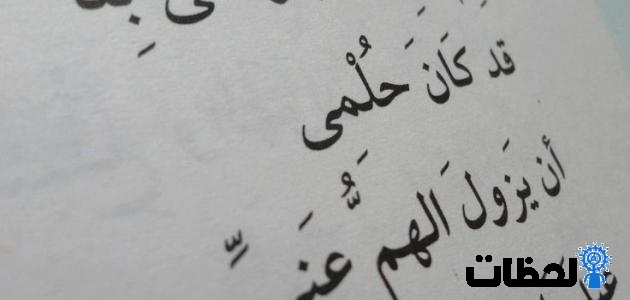 قد كَانَ حُلْمى
أن يَزول الهم عَنِّى
لحظات